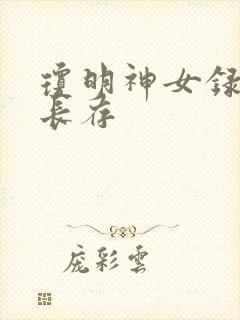 琼明神女録
長存
庞彩雲